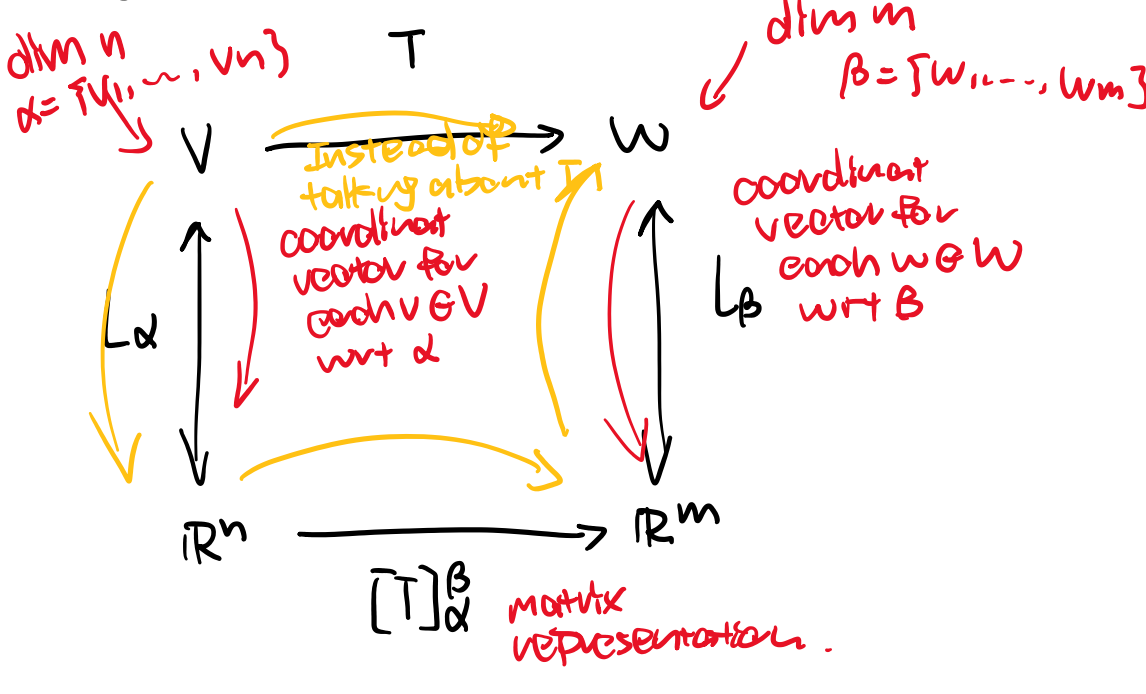 dim n
α = {v1, ..., vn}
T
dim m
β = {w1, ..., wm}
V
W
Instead of
talking about T
coordinat
vector for
each v ∈ V
wrt α
coordinat
vector for
each w ∈ W
wrt β
Lα
Lβ
ℝⁿ
ℝᵐ
[T]βα
matrix
representation.